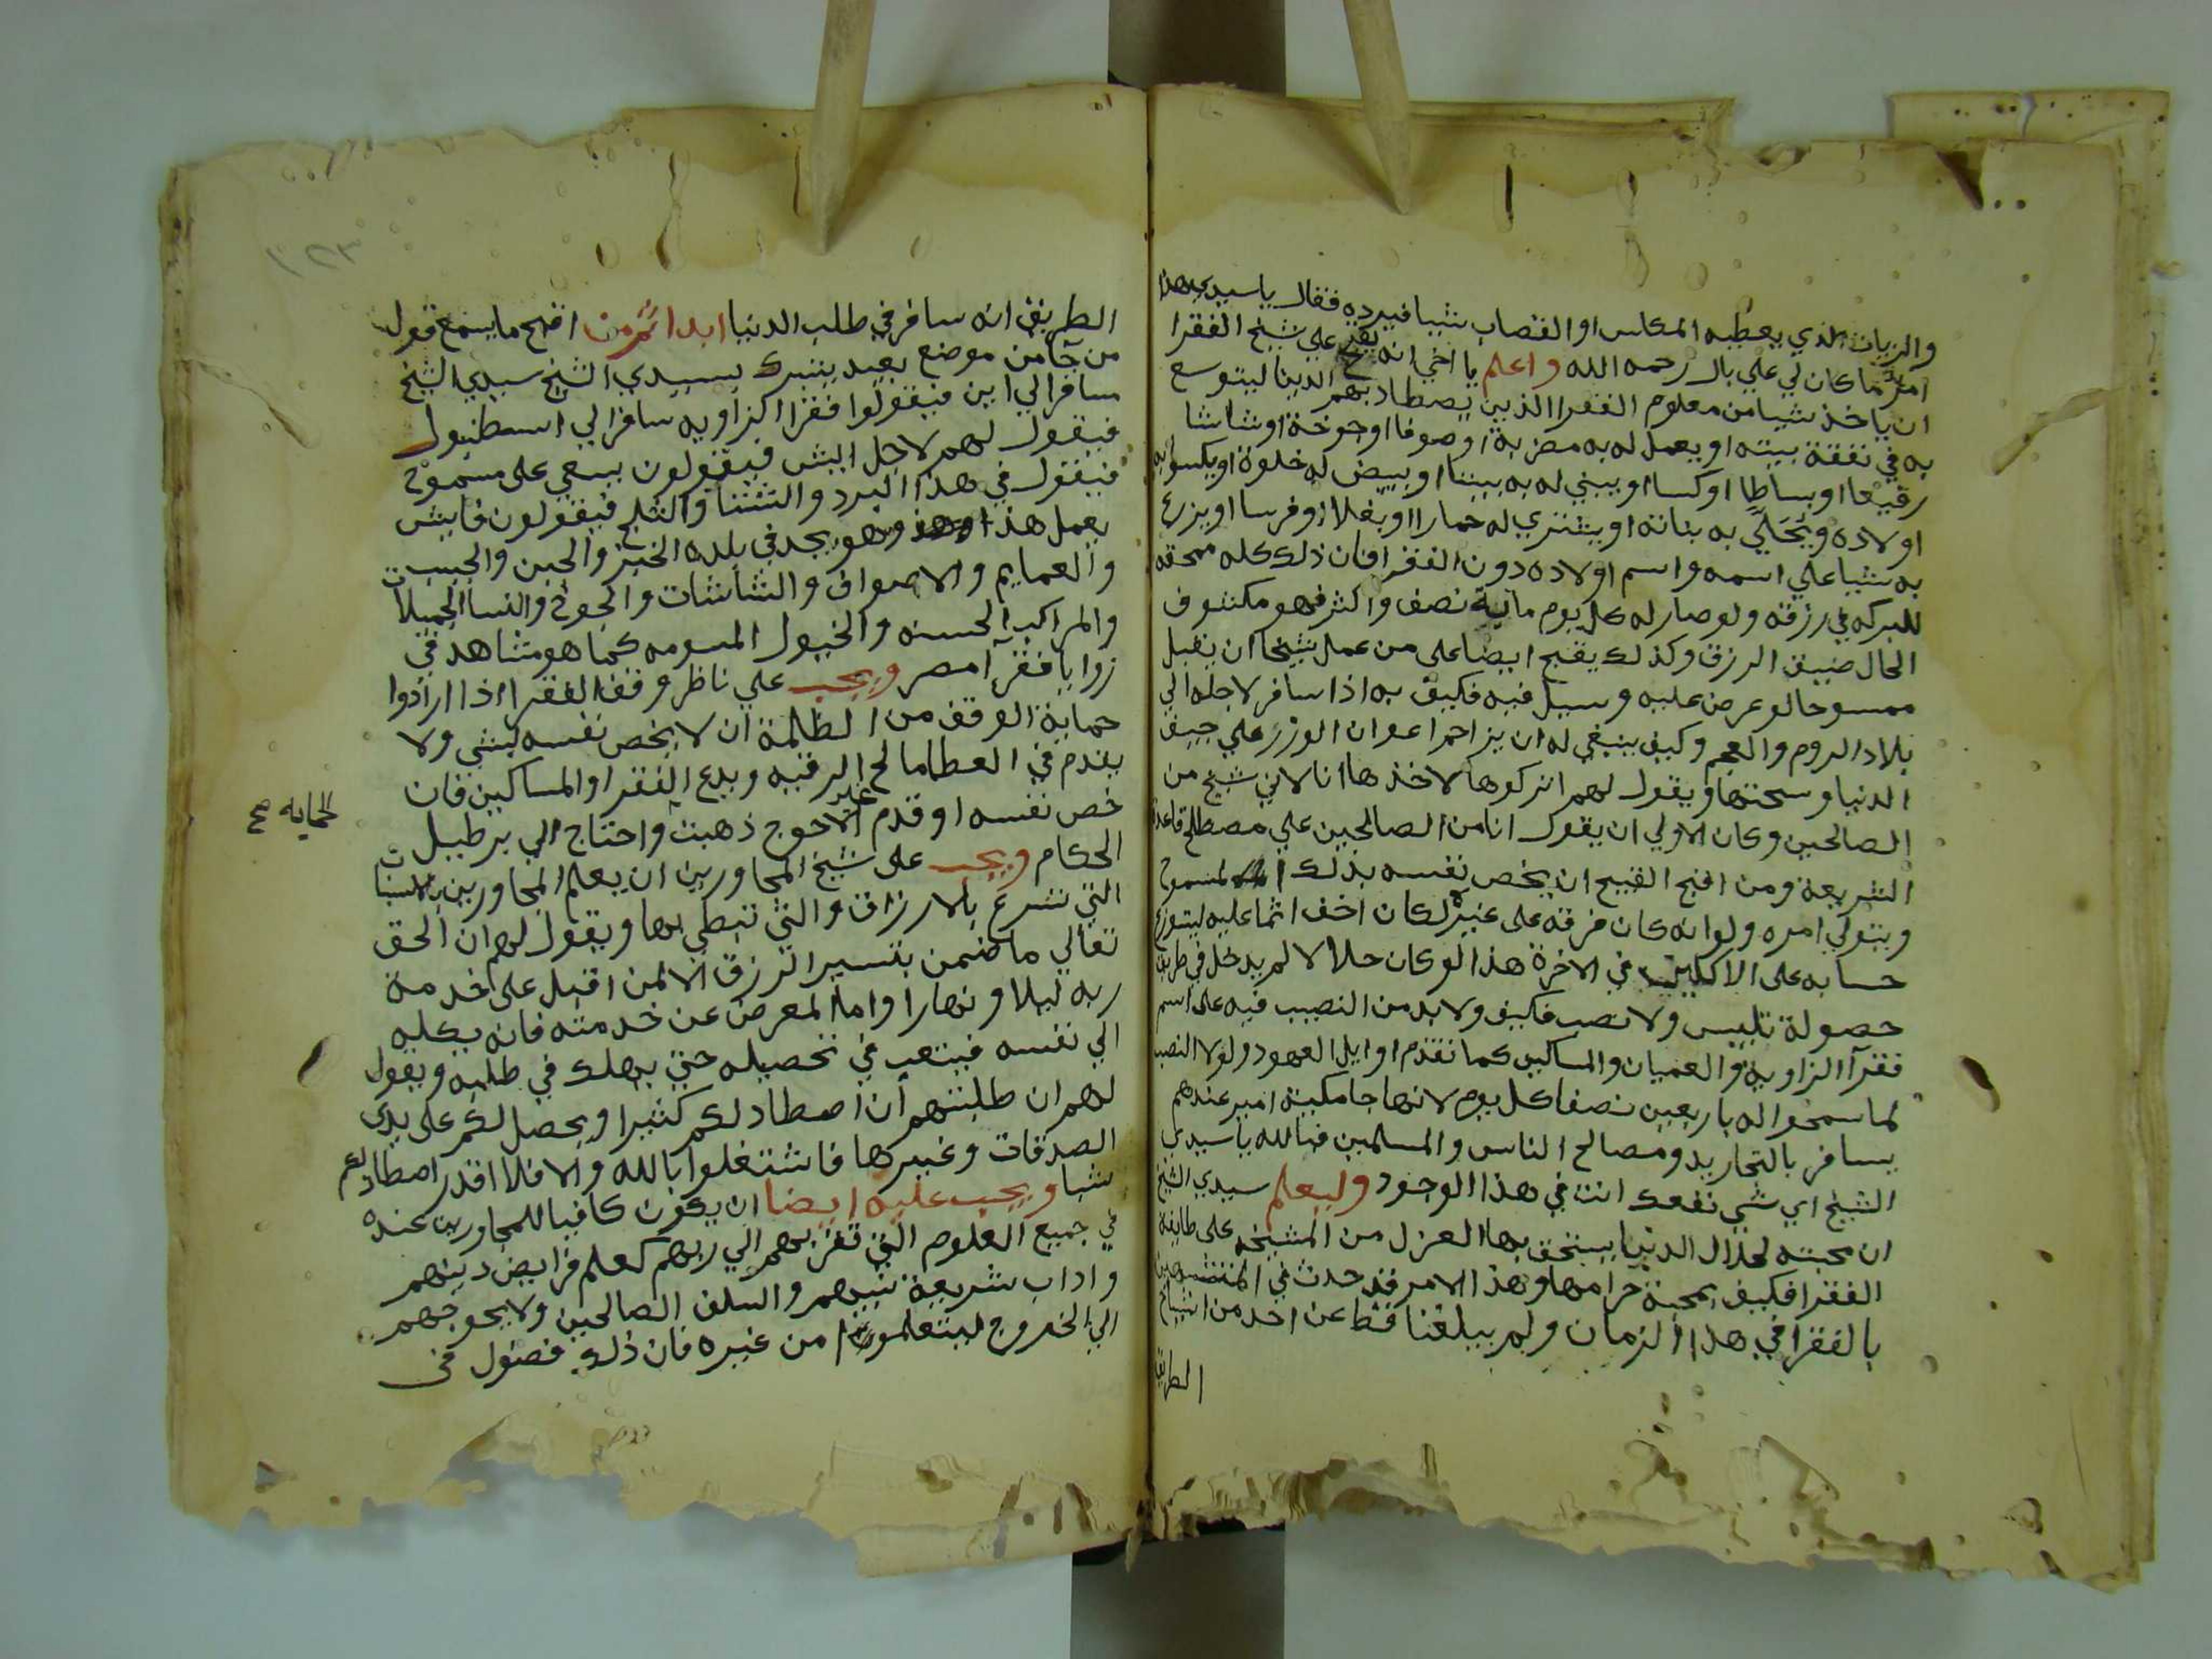 والزيات الذي يعطيه المكاس او القصاب شيبا فيرده فقال ياسيدي هذا
امر ما كان لي علي بال رحمه الله واعلم يا اخي انه يقبح علي شيخ الفقرا
ان ياخذ شيا من معلوم الفقرا الذين يصطاد بهم الدينا ليتوسع
به في نفقة بيته او يعمل له به مضربة او صوفا او جوخة او شاشا
رفيعا او بساطا او كسا او يبني له به بيتا او يبيض له خلوة او يكسوا به
اولاده ويُحَلِّي به بناته او يشتري له حمارا او بغلا او فرسا او يزرع
به شيا علي اسمه واسم اولاده دون الفقرا فان ذلك كله ممحقه
للبركه في رزقه ولو صار له كل يوم ماية نصف واكثر فهو مكشوف
الحال ضيق الرزق وكذلك يقبح ايضا على من عمل شيخا ان يقبل
ممسوحا لو عرض عليه وسيل فيه فكيف به اذا سافر لاجله الي
بلاد الروم والعجم وكيف ينبغي له ان يزاحم اعوان الوزر علي جيف
الدنيا وسحتها ويقول لهم اتركوها لاخذها انا لاني شيخ من
الصالحين وكان الاولي ان يقول انا من الصالحين علي مصطلح قاعدة
الشريعة ومن اقبح القبيح ان يخص نفسه بذلك المسموح
ويتولي امره ولو انه كان فرقه على غيره لكان اخف اثما عليه ليتوزع
حسابه على الاكلين في الاخرة هذا لو كان حلالا لم يدخل في طريق
حصوله تلبيس ولا نصب فكيف ولا بد من النصيب فيه على اسم
فقرآ الزاوية والعميان والمساكين كما تقدم اوايل العهود ولولا النصب
لما سمحوا له باربعين نصفا كل يوم لانها جامكية امير عندهم
يسافر بالتجاريد ومصالح الناس والمسلمين فبالله يا سيدي
الشيخ اي شي نفعك انت في هذا الوجود وليعلم سيدي الشيخ
ان محبته لحلال الدنيا يستحق بها العزل من المشيخه على طايفة
الفقرا فكيف بمحبة حرامها وهذا الامر قد حدث في المتشبهين
بالفقرا في هذا الزمان ولم يبلغنا قط عن احد من اشياخ
الطريق
الطريق انه سافر في طلب الدنيا ابدا ثم من اقبح ما يسمع قول
من جآ من موضع بعيد يتبرك بسيدي الشيخ سيدي الشيخ
مسافر الي اين فيقولوا فقرا الزاويه سافر الي اسطنبول
فيقول لهم لاجل ايش فيقولون يسعي على مسموح
فيقول في هذا البرد والشتا والثلج فيقولون فايش
يعمل هذا وهو يجد في بلده الخبز والجبن والجبب
والعمايم والاصواف والشاشات والجوخ والنسا الجميلات
والمراكب الحسنه والخيول المسومه كما هو مشاهد في
زوايا فقرآ مصر ويجب علي ناظر وقف الفقرا اذا ارادوا
حماية الوقف من الظلمة ان لا يخص نفسه بشي ولا
يقدم في العطا مالح الرقبه ويدع الفقرا والمساكين فان
الحمايه ع
خص نفسه او قدم غير الاحوج ذهبت واحتاج الي برطيل
الحكام ويجب على شيخ المجاورين ان يعلم المجاورين بالاسباب
التي تسرع بالارزاق والتي تبطي بها ويقول لهم ان الحق
تعالي ما ضمن بتيسير الرزق الا لمن اقبل على خدمة
ربه ليلا ونهارا واما المعرض عن خدمته فانه يكله
الي نفسه فيتعب في تحصيله حتي يهلك في طلبه ويقول
لهم ان طلبتهم ان اصطاد لكم كثيرا ويحصل لكم على يدي
الصدقات وغيرها فاشتغلوا بالله والا فلا اقدر اصطاد لكم
شيا ويجب عليه ايضا ان يكون كافيا للمجاورين عنده
في جميع العلوم التي تقربهم الي ربهم كعلم فرايض دينهم
واداب شريعة نبيهم والسلف الصالحين ولا يحوجهم
الي الخروج ليتعلموا من غيره فان ذلك فضول في
١٢٣